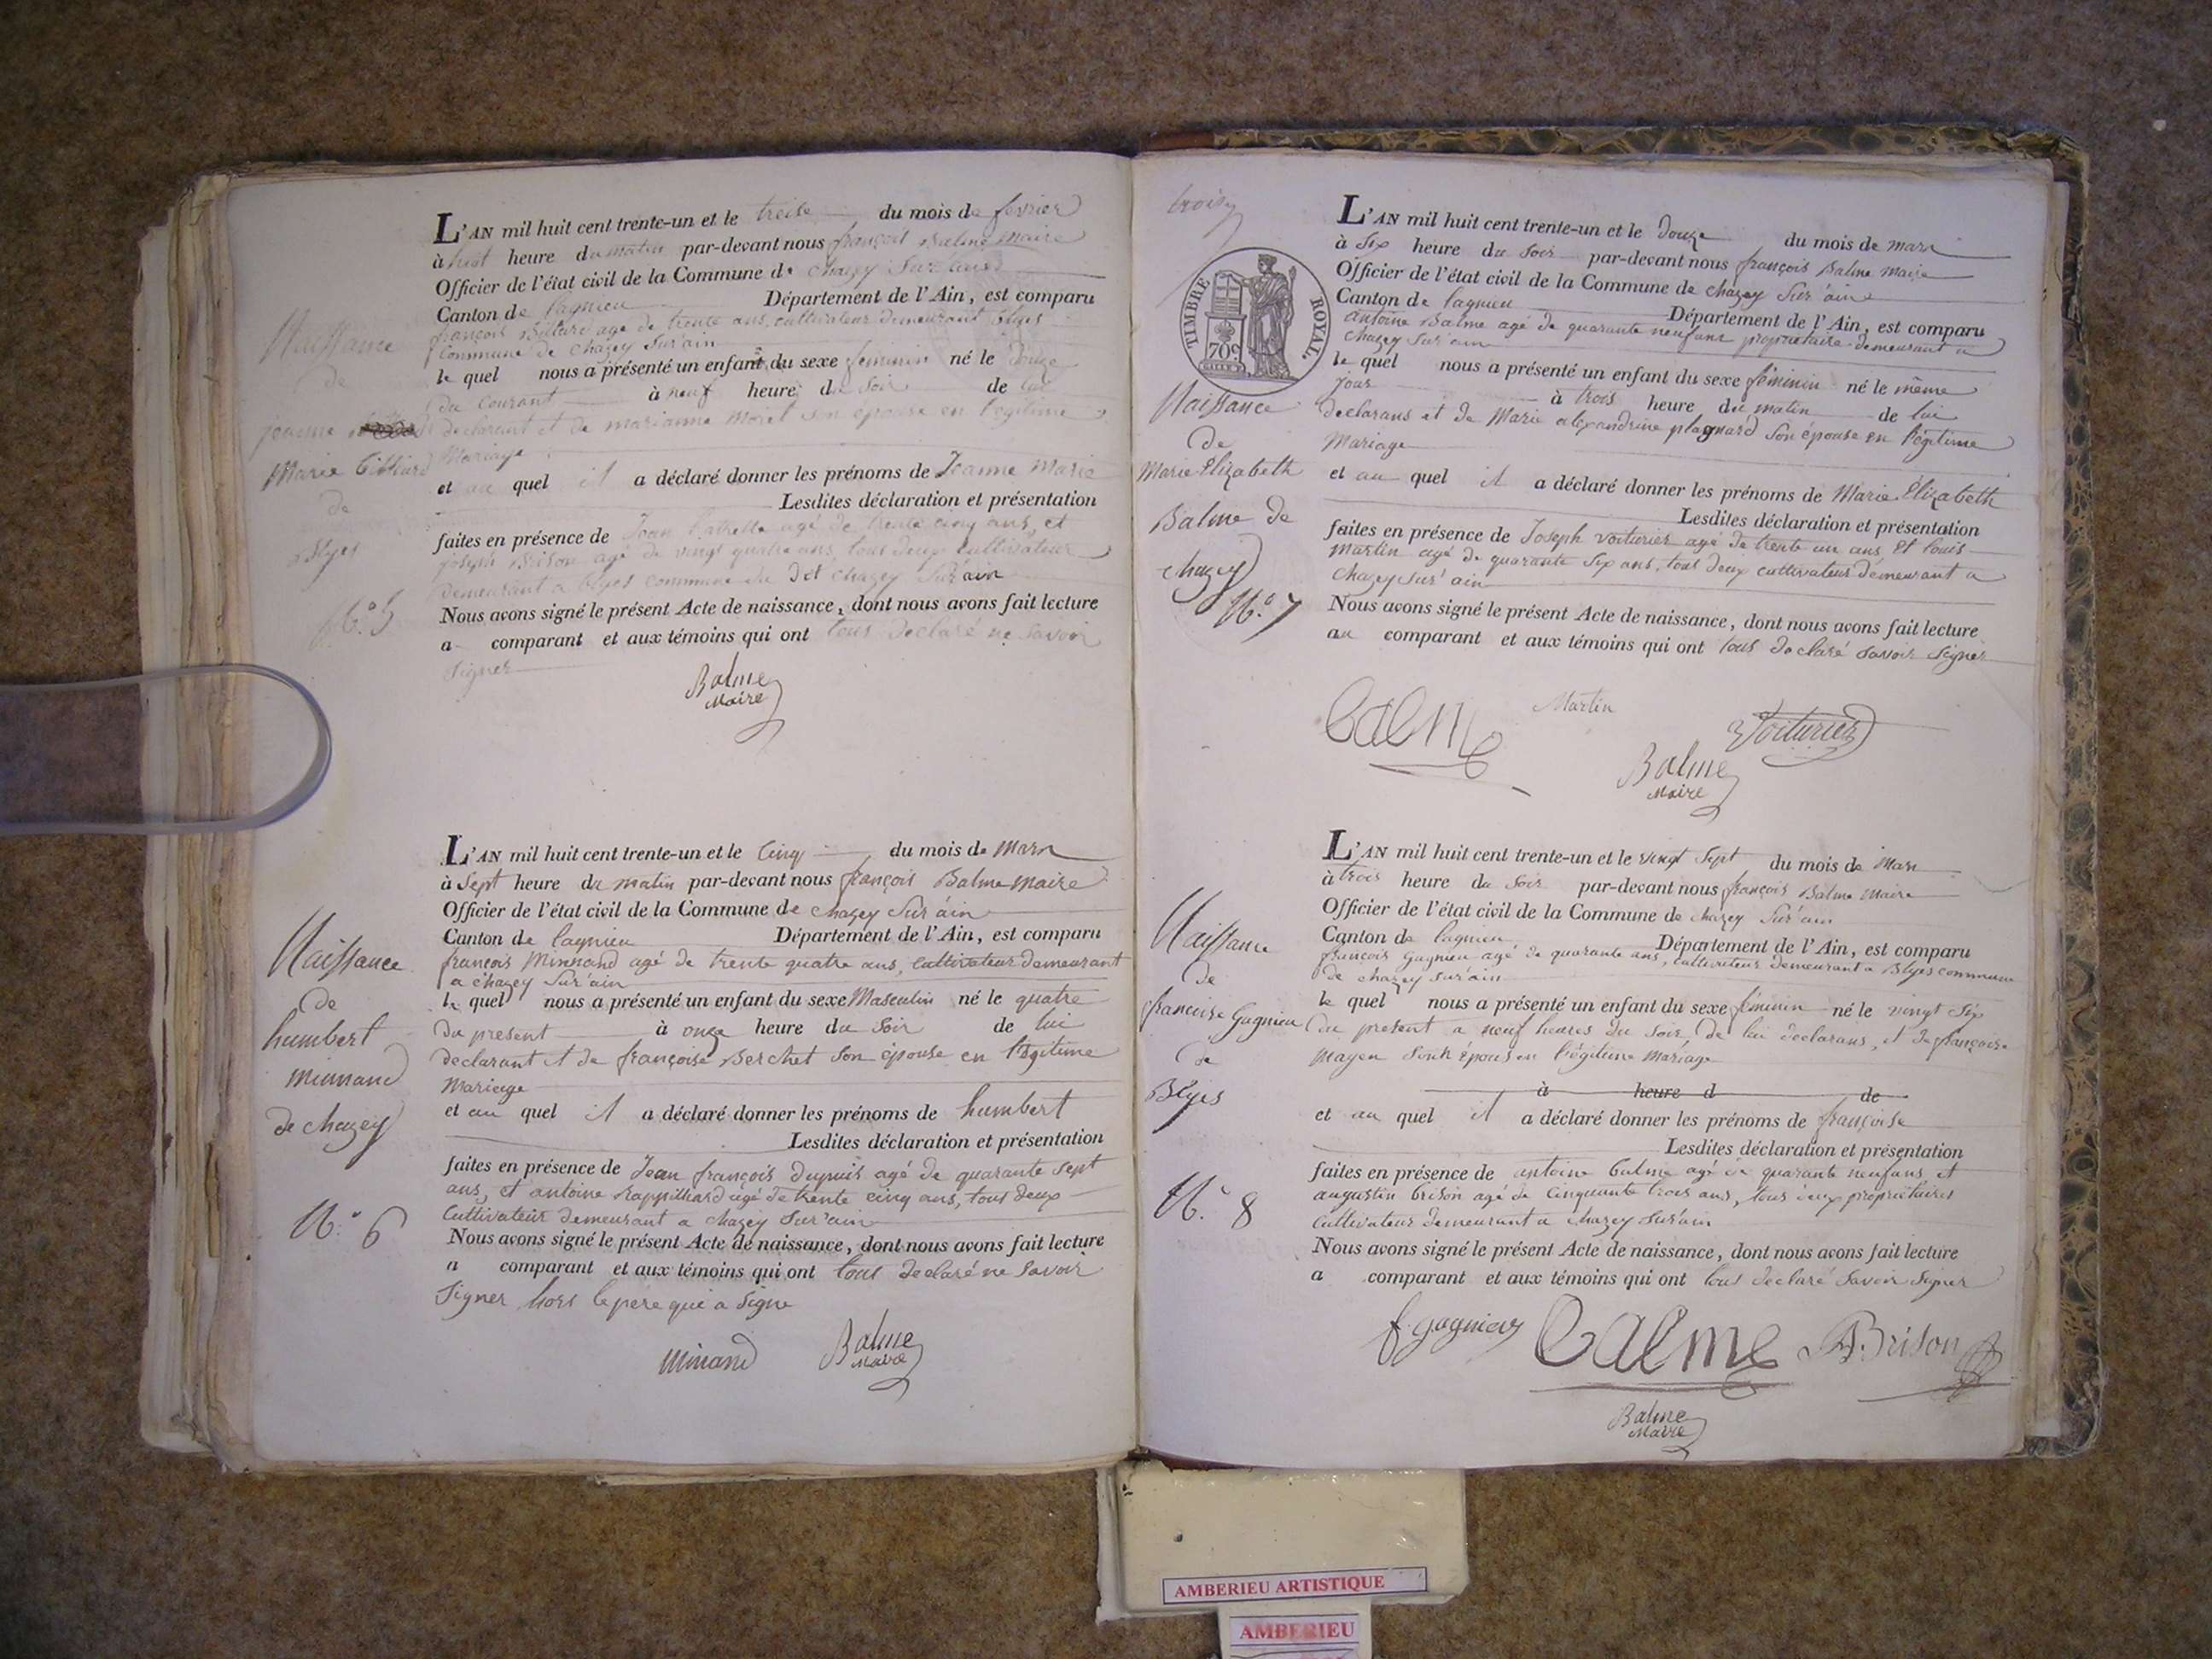 L'AN mil huit cent trente-un et le treise du mois de fevrier
à huit heure du matin par-devant nous françois Balme maire
Officier de l'état civil de la Commune de chazey Sur
Canton de lagnieu Département de l'Ain, est comparu
françois agé de trente ans, cultivateur demeurant Blyes
Commune de Chazey Sur ain
le quel nous a présenté un enfant du sexe feminin né le douze
du courant à neuf heure du Soir de lui
declarant et de marianne morel son épouse en légitime
Mariage
et au quel il a déclaré donner les prénoms de Jeanne Marie
Lesdites déclaration et présentation
faites en présence de Jean agé de trente cinq ans, et
joseph Brison agé de vingt quatre ans, tous deux cultivateur
demeurant a Blyes commune du dit chazey Sur ain
Nous avons signé le présent Acte de naissance, dont nous avons fait lecture
a comparant et aux témoins qui ont tous declaré ne savoir
signer
Balme
Maire
Naissance
de
jeanne
Marie
de
Blyes
N.° 5
L'AN mil huit cent trente-un et le Cinq du mois de Mars
à Sept heure du matin par-devant nous françois Balme maire
Officier de l'état civil de la Commune de chazey Sur ain
Canton de lagnieu Département de l'Ain, est comparu
françois Minnand agé de trente quatre ans, cultivateur demeurant
a chazey Sur ain
le quel nous a présenté un enfant du sexe Masculin né le quatre
du present à onze heure du Soir de lui
declarant et de françoise Berchet Son épouse en légitime
Mariage
et au quel il a déclaré donner les prénoms de humbert
Lesdites déclaration et présentation
faites en présence de Jean françois Dupuis agé de quarante Sept
ans, et antoine Rappilliard agé de trente cinq ans, tous deux
Cultivateur demeurant a chazey Sur ain
Nous avons signé le présent Acte de naissance, dont nous avons fait lecture
a comparant et aux témoins qui ont tous declaré ne Savoir
Signer hors le pere qui a Signe
Minand
Balme
Maire
Naissance
de
humbert
Minnand
de chazey
N.° 6
TIMBRE ROYAL
70c
L'AN mil huit cent trente-un et le douze du mois de mars
à Six heure du Soir par-devant nous françois Balme maire
Officier de l'état civil de la Commune de chazey Sur ain
Canton de lagnieu Département de l'Ain, est comparu
antoine Balme agé de quarante neuf ans propriétaire demeurant a
chazey Sur ain
le quel nous a présenté un enfant du sexe féminin né le même
jour à trois heure du matin de lui
declarans et de Marie alexandrine plagnard Son épouse en légitime
Mariage
et au quel il a déclaré donner les prénoms de Marie Elizabeth
Lesdites déclaration et présentation
faites en présence de Joseph voiturier agé de trente un ans, et louis
Martin agé de quarante Six ans, tous deux cultivateur demeurant a
chazey Sur ain
Nous avons signé le présent Acte de naissance, dont nous avons fait lecture
au comparant et aux témoins qui ont tous declaré Savoir Signer
Balme
Martin
Voiturier
Balme
Maire
Naissance
de
Marie Elizabeth
Balme de
chazey
N.° 7
L'AN mil huit cent trente-un et le vingt Sept du mois de Mars
à trois heure du Soir par-devant nous françois Balme Maire
Officier de l'état civil de la Commune de chazey Sur ain
Canton de lagnieu Département de l'Ain, est comparu
françois Gagnieu agé de quarante ans, cultivateur demeurant a Blyes commune
de chazey Sur ain
le quel nous a présenté un enfant du sexe féminin né le vingt Six
du present a neuf heures du Soir, de lui declarans, et de françoise
Mayen épous en légitime Mariage
à heure d de
et au quel il a déclaré donner les prénoms de françoise
Lesdites déclaration et présentation
faites en présence de antoine Balme agé de quarante neuf ans et
augustin brison agé de Cinquante trois ans, tous deux propriétaires
Cultivateur demeurant a chazey Sur ain
Nous avons signé le présent Acte de naissance, dont nous avons fait lecture
a comparant et aux témoins qui ont tous declaré Savoir Signer
f. gagnieu
Balme
A. Brison
Balme
Maire
Naissance
de
francoise Gagnieu
de
Blyes
N.° 8
AMBERIEU ARTISTIQUE
AMBERIEU